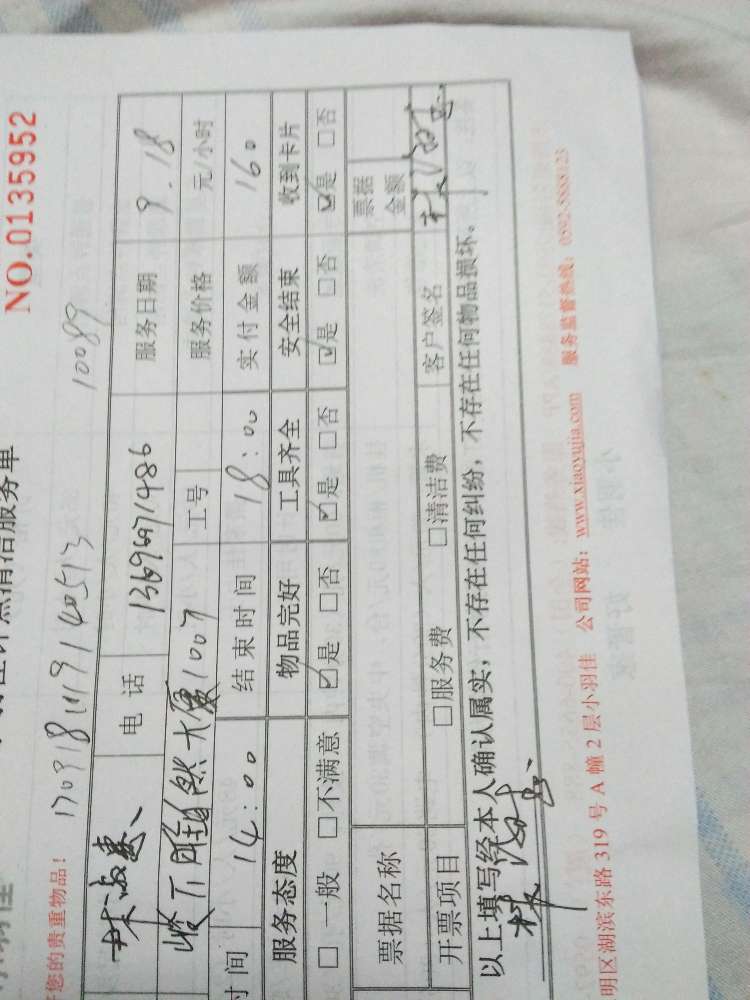 NO.0135952
佳计点清洁服务单
好您的贵重物品！ 170918111914051 10089
电话 服务日期 9.18
大厦1007 工号 服务价格 元/小时
时间 14:00 结束时间 18:00 实付金额 160
服务态度 物品完好 工具齐全 安全结束 收到卡片
□一般 □不满意 ☑是 □否 ☑是 □否 ☑是 □否 ☑是 □否
票据名称 票据金额
开票项目 □服务费 □清洁费 客户签名
以上填写经本人确认属实，不存在任何纠纷，不存在任何物品损坏。
明区湖滨东路 319 号 A 幢 2 层小羽佳 公司网站：www.xiaoyujia.com 服务监督热线：0592-5888123